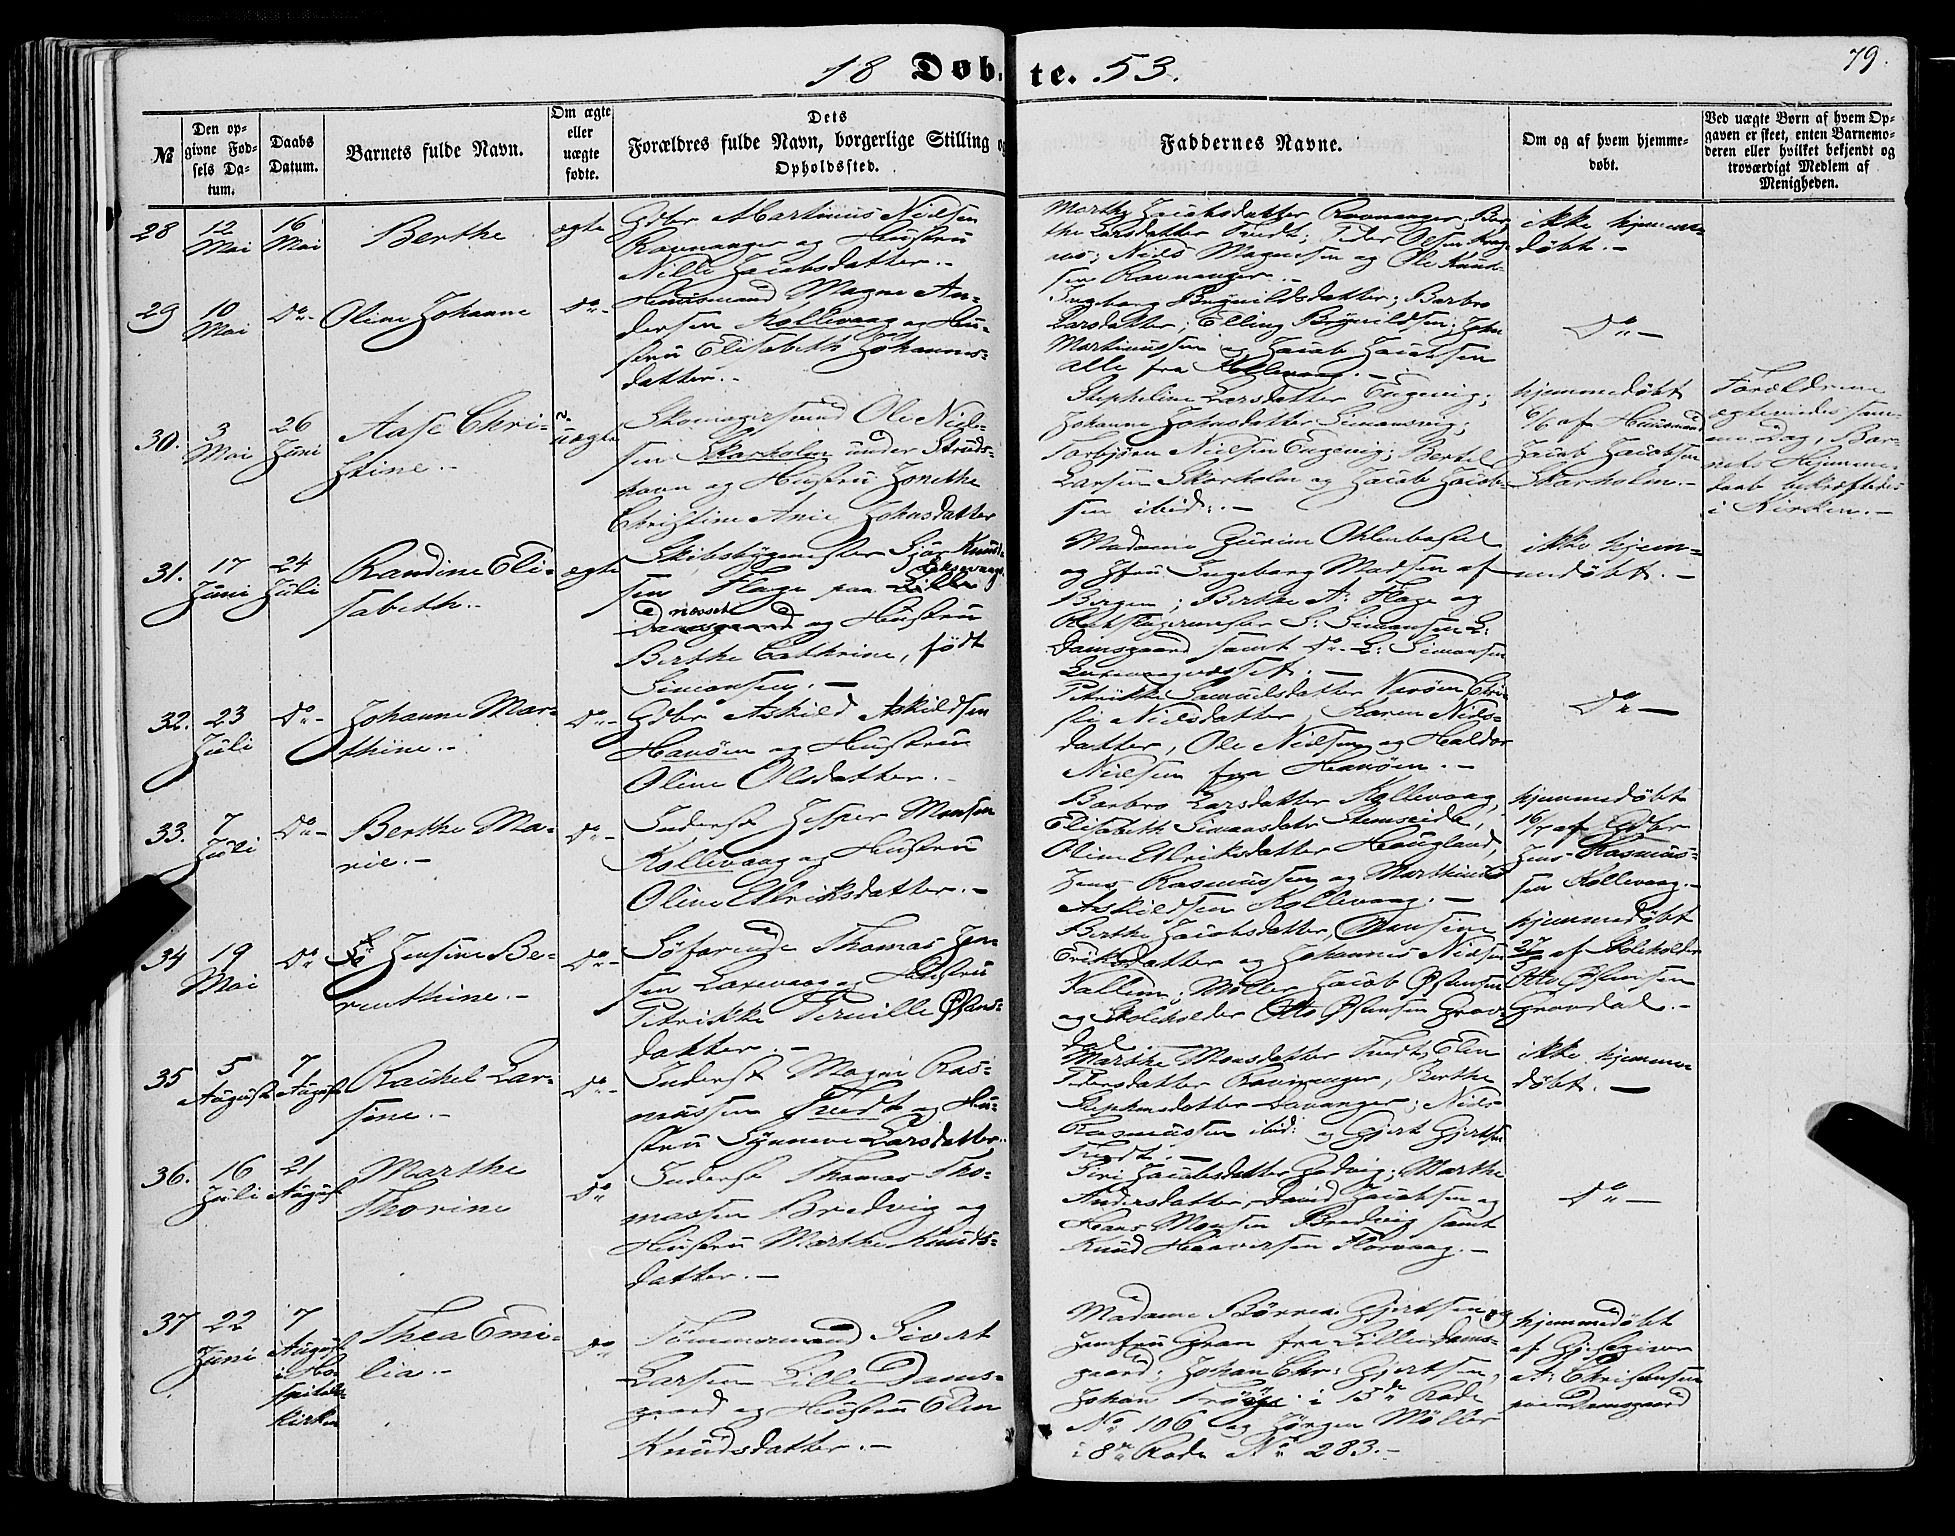 18 Døb- te. 53.
79.
№
Den op-
givne Fød-
sels Da-
tum.
Daabs
Datum.
Barnets fulde Navn.
Om ægte
eller
uægte
fødte.
Dets
Forældres fulde Navn, borgerlige Stilling og
Opholdssted.
Faddernes Navne.
Om og af hvem hjemme-
døbt.
Ved uægte Børn af hvem Op-
gaven er skeet, enten Barnemo-
deren eller hvilket bekjendt og
troværdigt Medlem af
Menigheden.
28
12
Mai
16
Mai
Berthe
ægte
Gdbr Martinus Nielsen
Ravnanger og Hustru
Nille Jacobsdatter.-
Marthe Jacobsdatter Ravnanger, Ber-
the Larsdatter Tvedt; Peder Olsen
Niels Magnesen og Ole Knud-
sen Ravnanger.-
ikke hjemme-
døbt.-
29
10
Mai
Do-
Oline Johanne
Do-
Huusmand Magne An-
dersen Kollevaag og Hu-
stru Elisabeth Johannes-
datter.-
Ingeborg Brynildsdatter; Barbro
Larsdatter; Elling Brynildsen; John
Martinussen og Jacob Jacobsen
alle fra Kollevaag.-
Do-
30.
3
Mai
26
Juni
Aase Chri-
stine.-
uægte
Skomagersvend Ole Niel-
sen Skarholm under Struds-
havn og Hustru Jonethe
Christine Anne Johnsdatter
Stepheline Larsdatter Engevig;
Johanne Johnsdatter Simonsvig;
Torbjørn Nielsen Engevig; Bertel
Larsen Skarholm og Jacob Jacob-
sen ibid:.-
hjemmedøbt
6/6 af Huusmand
Jacob Jacobsen
Skarholm.-
Forældrene
egteviedes sam-
me Dag, Bar-
nets Hjemme-
daab bekræftedes
i Kirken.-
31.
17
Juni
24
Juli
Randine Eli-
sabeth.-
ægte
Skibsbygmester Sjur Knud-
sen Flage paa Lille
Laxevaags-
neset
Damsgaard og Hustru
Berthe Cathrine, født
Simonsen.-
Madame Gurine Ohlenbostel
og Jfru Ingeborg Madsen af
Bergen; Berthe A: Flage og
S: Simonsen L:
Damsgaard samt Do- L: Simonsen
Laxevaagnesset.-
ikke hjem-
medøbt.-
32.
23
Juli
Do-
Johanne Mar-
thine.-
Do-
Gdbr Askild Askildsen
Hanøen og Hustru
Oline Olsdatter.-
Petrikke Samuelsdatter
Nielsdatter, Karen Niels-
datter, Ole Nielsen og Haldor
Nielsen fra Hanøen.-
Do-
33.
7
Juli
Do-
Berthe Ma-
rie.-
Do-
Inderst Jesper Monsen
Kollevaag og Hustru
Oline Ulriksdatter.-
Barbro Larsdatter Kollevaag,
Elisabeth Simonsdatr Steinseide,
Oline Ulriksdatter Haugland,
Jens Rasmussen og Marthinus
Askildsen Kollevaag.-
hjemmedøbt
16/7 af Gdbr
Jens Rasmus-
sen Kollevaag.-
34
19
Mai
Do
Jensine Be-
renthine.-
Do-
Søfarende Thomas Jen-
sen Laxevaag og Hustru
Petrikke Pernille Østens-
datter.-
Berthe Jacobsdatter,
Eriksdatter og Johannes Nielsen
Møller Jacob Østensen
og Skoleholder Otto Østensen Grav-
dal.
hjemmedøbt
27/5 af Skoleholder
Otto Østensen
Gravdal.-
35
5
August
7
August
Rachel Lar-
sine.-
Do-
Inderst Magne Ras-
mussen Tvedt og Hu-
stru Synneve Larsdatter.
Marthe Monsdatter Tvedt, Elen
Pedersdatter Ravnanger, Berthe
Stephensdatter Davanger; Niels
Rasmussen ibid: og Gjert Gjertsen
Tvedt.-
ikke hjemme-
døbt.-
36.
16
Juli
21
August
Marthe
Thorine
Do
Inderst Thomas Tho-
massen Bredvig og
Hustru Marthe Knuds-
datter.-
Siri Jacobsdatter Marthe
Andersdatter, David Jacobsen og
Hans Monsen Bredvig samt
Knud Haaversen Florvaag.-
Do-
37
22
Juni
7
August
i Ho-
spitals-
kirken
Thea Emi-
lia.-
Do
Tømmermand Sivert
Larsen Lille Dams-
gaard og Hustru Elen
Knudsdatter.-
Madame Gjertsen og
Jomfru Gran fra Lille Dams-
gaard; Johan Chr: Gjertsen,
Johan i 15de Rode
No 106 og Jørgen Møller
i 8de Rode No 283.-
hjemmedøbt
af Gjestgiver
A: Christensen
paa Damsgaard